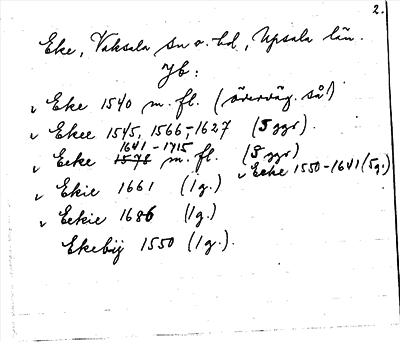 2.
Eke, Vaksala sn o. hd, Upsala län.
Jb:
v Eke 1540 m. fl. (överväg. så!)
v Ekee 1545, 1566-1627 (5 ggr)
1641-1715
v Eeke 1578 m. fl. (8 ggr)
v Ecke 1550-1641 (5g.)
v Ekie 1661 (1g.)
v Eekie 1686 (1g.)
Ekebij 1550 (1g.).